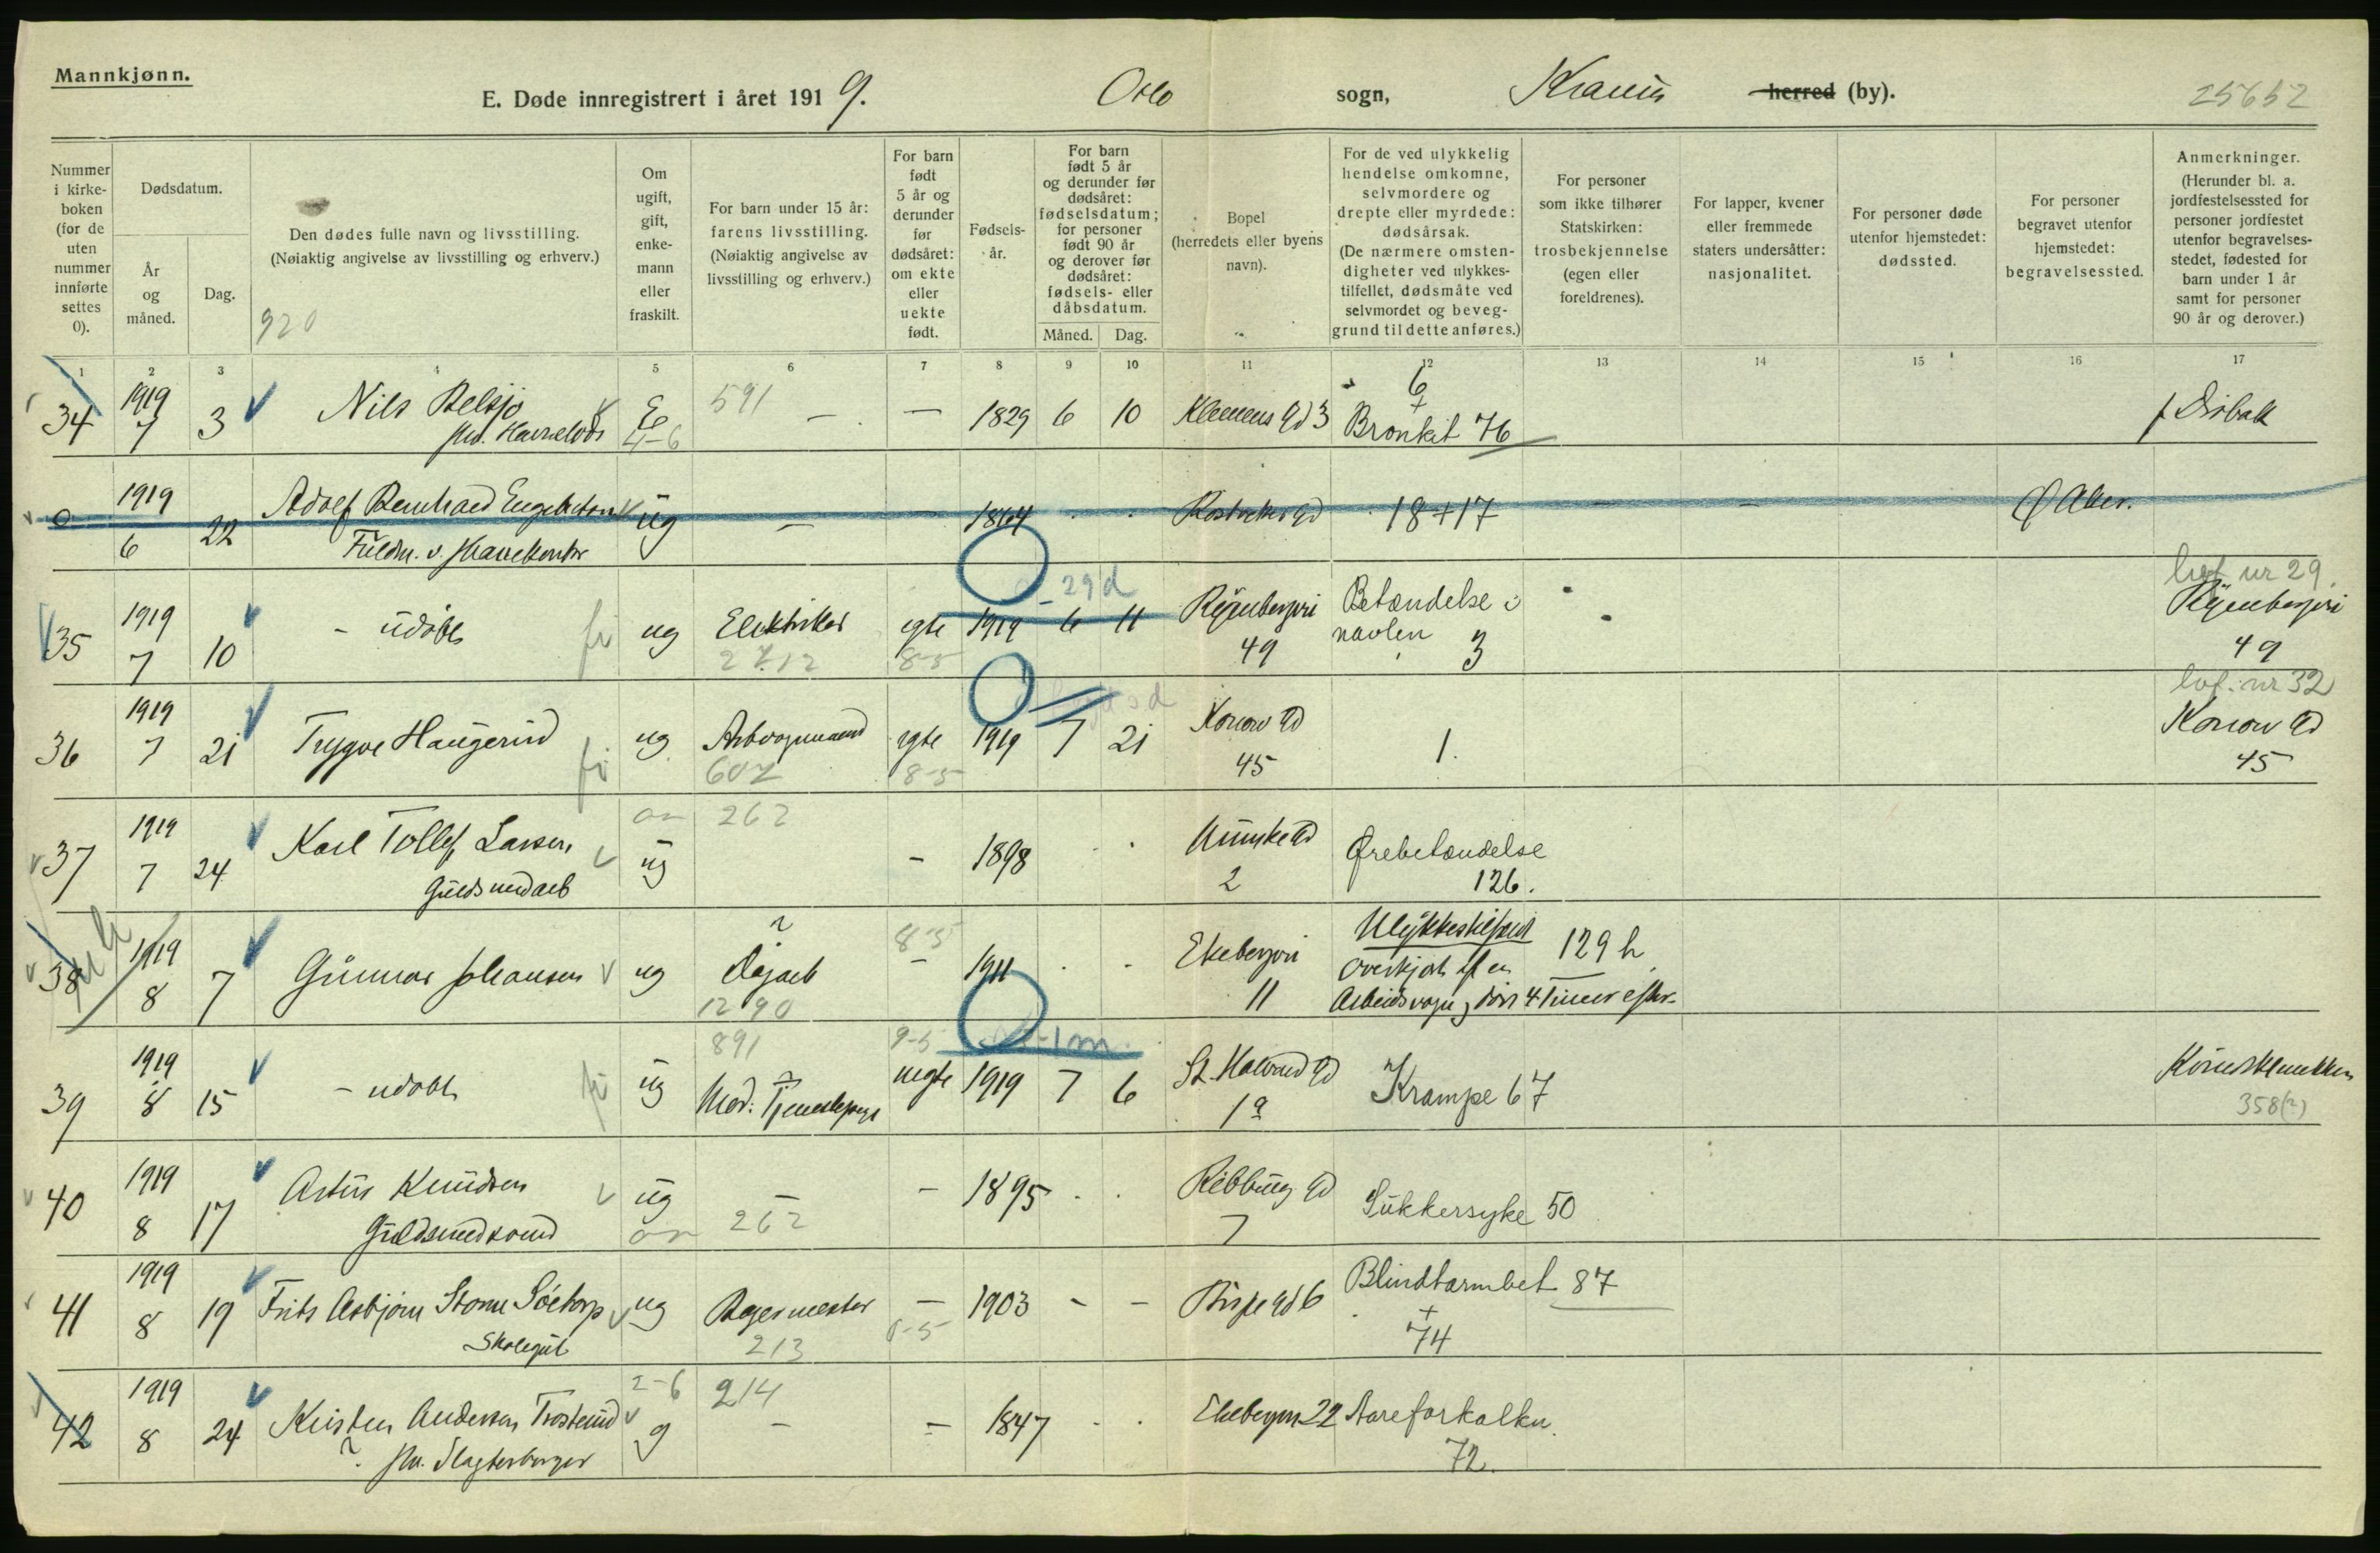 Mannkjønn.
E. Døde innregistrert i året 1919. Oslo sogn, Krania herred (by). 25652
Nummer i kirkeboken (for de uten nummer innførte settes 0).
Dødsdatum.
År og måned.
Dag.
Den dødes fulle navn og livsstilling.
(Nøiaktig angivelse av livsstilling og erhverv.)
920
Om ugift, gift, enkemann eller fraskilt.
For barn under 15 år: farens livsstilling.
(Nøiaktig angivelse av livsstilling og erhverv.)
For barn født 5 år og derunder før dødsåret: om ekte eller uekte født.
Fødselsår.
For barn født 5 år og derunder før dødsåret: fødselsdatum; for personer født 90 år og derover før dødsåret: fødsels- eller dåbsdatum.
Måned. Dag.
Bopel
(herredets eller byens navn).
For de ved ulykkelig hendelse omkomne, selvmordere og drepte eller myrdede: dødsårsak.
(De nærmere omstendigheter ved ulykkestilfellet, dødsmåte ved selvmordet og beveggrund til dette anføres.)
For personer som ikke tilhører Statskirken: trosbekjennelse (egen eller foreldrenes).
For lapper, kvener eller fremmede staters undersåtter: nasjonalitet.
For personer døde utenfor hjemstedet: dødssted.
For personer begravet utenfor hjemstedet: begravelsessted.
Anmerkninger.
(Herunder bl. a. jordfestelsessted for personer jordfestet utenfor begravelsesstedet, fødested for barn under 1 år samt for personer 90 år og derover.)
1 2 3 4 5 6 7 8 9 10 11 12 13 14 15 16 17
34 1919 7 3 Nils Belsjø E 4-6 591 — — 1829 6 10 Klemens Gd 3 6 + Bronkit 76 f Drøbak
0 1919 6 22 Adolf Bernhard Engebretsen ug — — 1864 18+17 Aker.
Fuldm. v. Havnekontor
35 1919 7 10 - udøbt ug Elektriker 2712 egte 8-5 29 d 1919 6 11 Ryenbergvei 49 Betændelse i navlen 3 nr 29 Ryenbergvei 49
36 1919 7 21 Trygve Haugerud ug Arbvognmand 607 egte 8-5 1919 7 21 Konow Gd 45 1. nr 32 Konow Gd 45
37 1919 7 24 Karl Tollef Larsen ug 262 - 1898 Munke Gd 2 Ørebetændelse 126.
Guldsmedarb
38 1919 8 7 Gunnar Johansen ug Dagarb 1290 8-5 - 1911 Ekebergvei 11 Ulykkestilfæld 129 h
overkjørt af en
Arbeidsvogn, død 4 Timer efter.
39 1919 8 15 - udøbt ug 891 Mod: Tjenestepige 9-5 uegte 1m. 1919 7 6 St. Halvard Gd 1a Krampe 67 358(2)
40 1919 8 17 Artur Knudsen ug — 262 - 1895 Ribbung Gd 7 Sukkersyke 50
Guldsmedsvend
41 1919 8 19 Frits Asbjørn Storm Søetorp ug Bagermester 213 — 1903 - - Bispe Gd 6 Blindtarmbet 87 + 74
Skolegut
42 1919 8 24 Kristen Andersen Trosterud 2-6 g 214 - - 1847 Ekebergvn 22 Aareforkalkn. 72.
Slagterborger